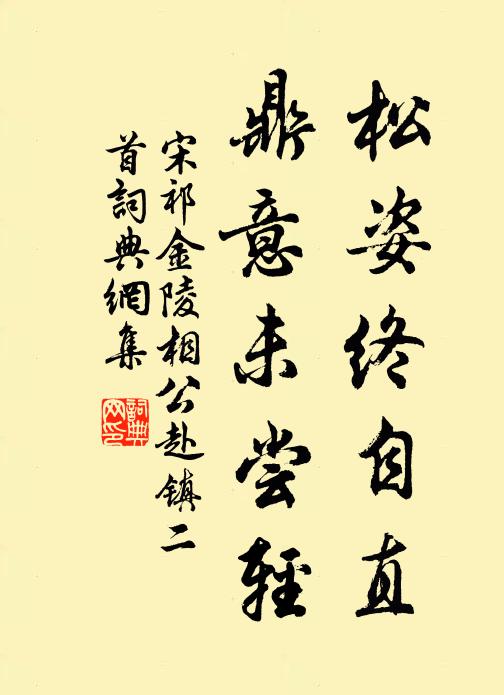 松姿终自直
鼎意未尝轻
宋祁金陵相公赴镇二
首詞典網集
詞典
网印